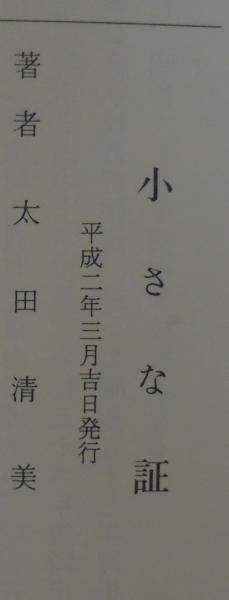 小さな証
平成二年三月吉日発行
著者 太田清美